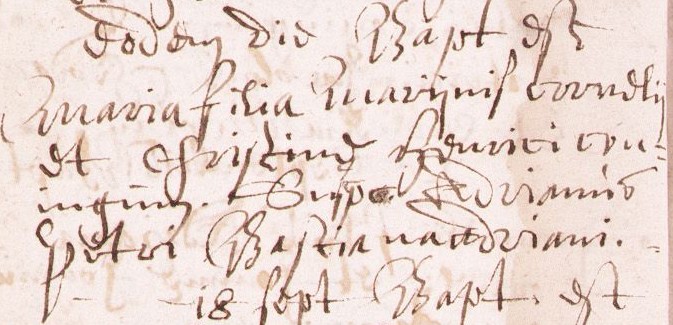 Eodem die Bapt est
Maria filia Marijnis Cornelij
et Christine Henrici con=
iugum. Susc. Adrianus
Petri Bastiana Adriani.
18 sept Bapt. est